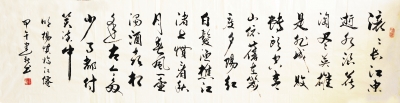 滚滚长江东
逝水浪花
淘尽英雄
是非成败
转头空青
山依旧在几
度夕阳红
白髮渔樵江
渚上惯看秋
月春风一壶
浊酒喜相
逢古今多
少事都付
笑谈中
明杨慎临江仙
甲午